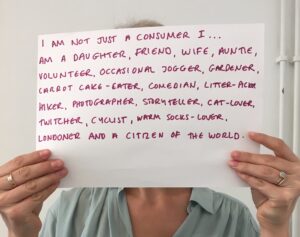 I AM NOT JUST A CONSUMER I...
AM A DAUGHTER, FRIEND, WIFE, AUNTIE,
VOLUNTEER, OCCASIONAL JOGGER, GARDENER,
CARROT CAKE-EATER, COMEDIAN, LITTER-
HIKER, PHOTOGRAPHER, STORYTELLER, CAT-LOVER,
TWITCHER, CYCLIST, WARM SOCKS-LOVER,
LONDONER AND A CITIZEN OF THE WORLD.